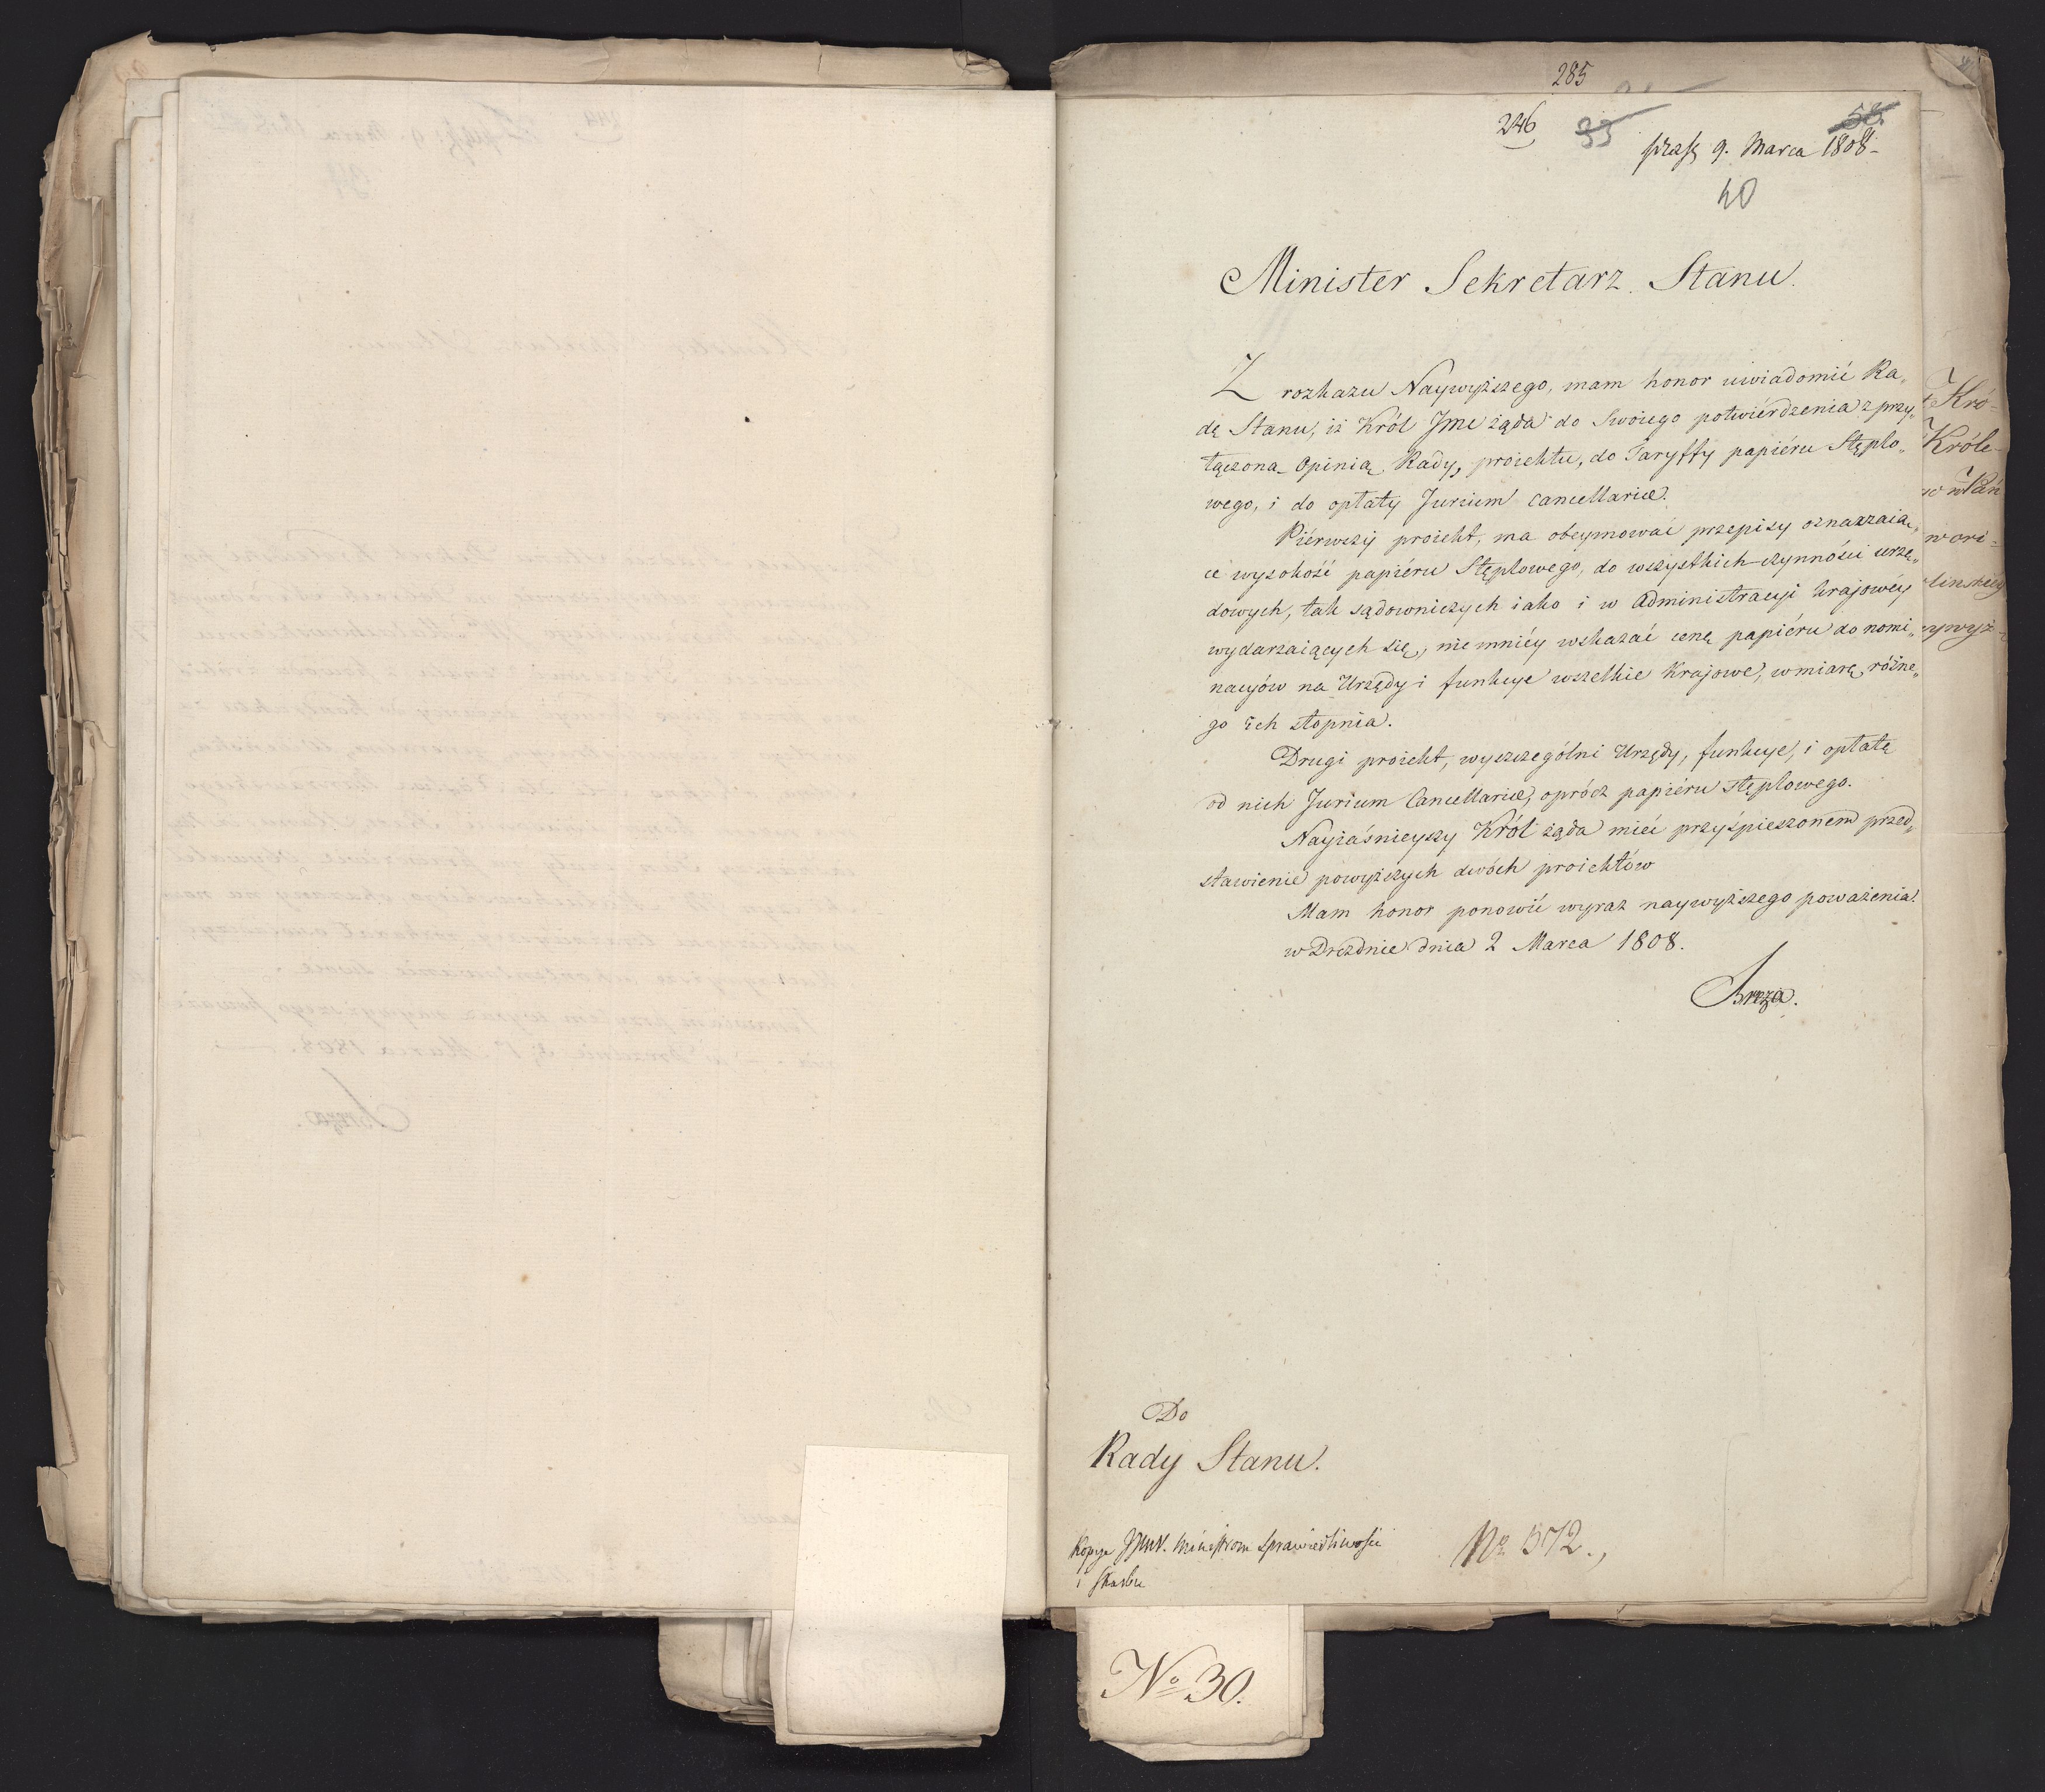 285
246 33 58.
9. Marca 1808
40
Minister Sekretarz Stanu.
Z rozkazu Naywyższego, mam honor uwiadomić Ra„
dę Stanu, iż Król Jmć żąda do Swoiego potwierdzenia z przy„
łączoną Opinią Rady, proiektu, do Taryffy papiéru Stęplo„
wego, i do opłaty Jurium Cancellariæ.
Piérwszy proiekt, ma obeymować przepisy oznaczaią„
ce wysokość papiéru Stęplowego, do wszystkich czynności urzę„
dowych, tak sądowniczych iako i w Administracyi krajowéy
wydarzaiących się, nie mniéy wskazać cenę papiéru do nomi„
nacyów na Urzędy i funkcye wszelkie Krajowe, w miarę różne„
go ich stopnia.
Drugi proiekt, wyszczególni Urzędy, funkcye, i opłatę
od nich Jurium Cancellariæ, oprócz papiéru stęplowego.
Nayiaśnieyszy Król żąda mieć przyśpieszonem przed„
stawienie powyższych dwóch proiektów
Mam honor ponowić wyraz naywyższego poważenia.
w Dreźdnie dnia 2 Marca 1808.
Breza.
Do
Rady Stanu.
Kopye JJWW. Ministrom Sprawiedliwości
i Skarbu
No 372.,
No 30.
Kró-
Króle-
wori-